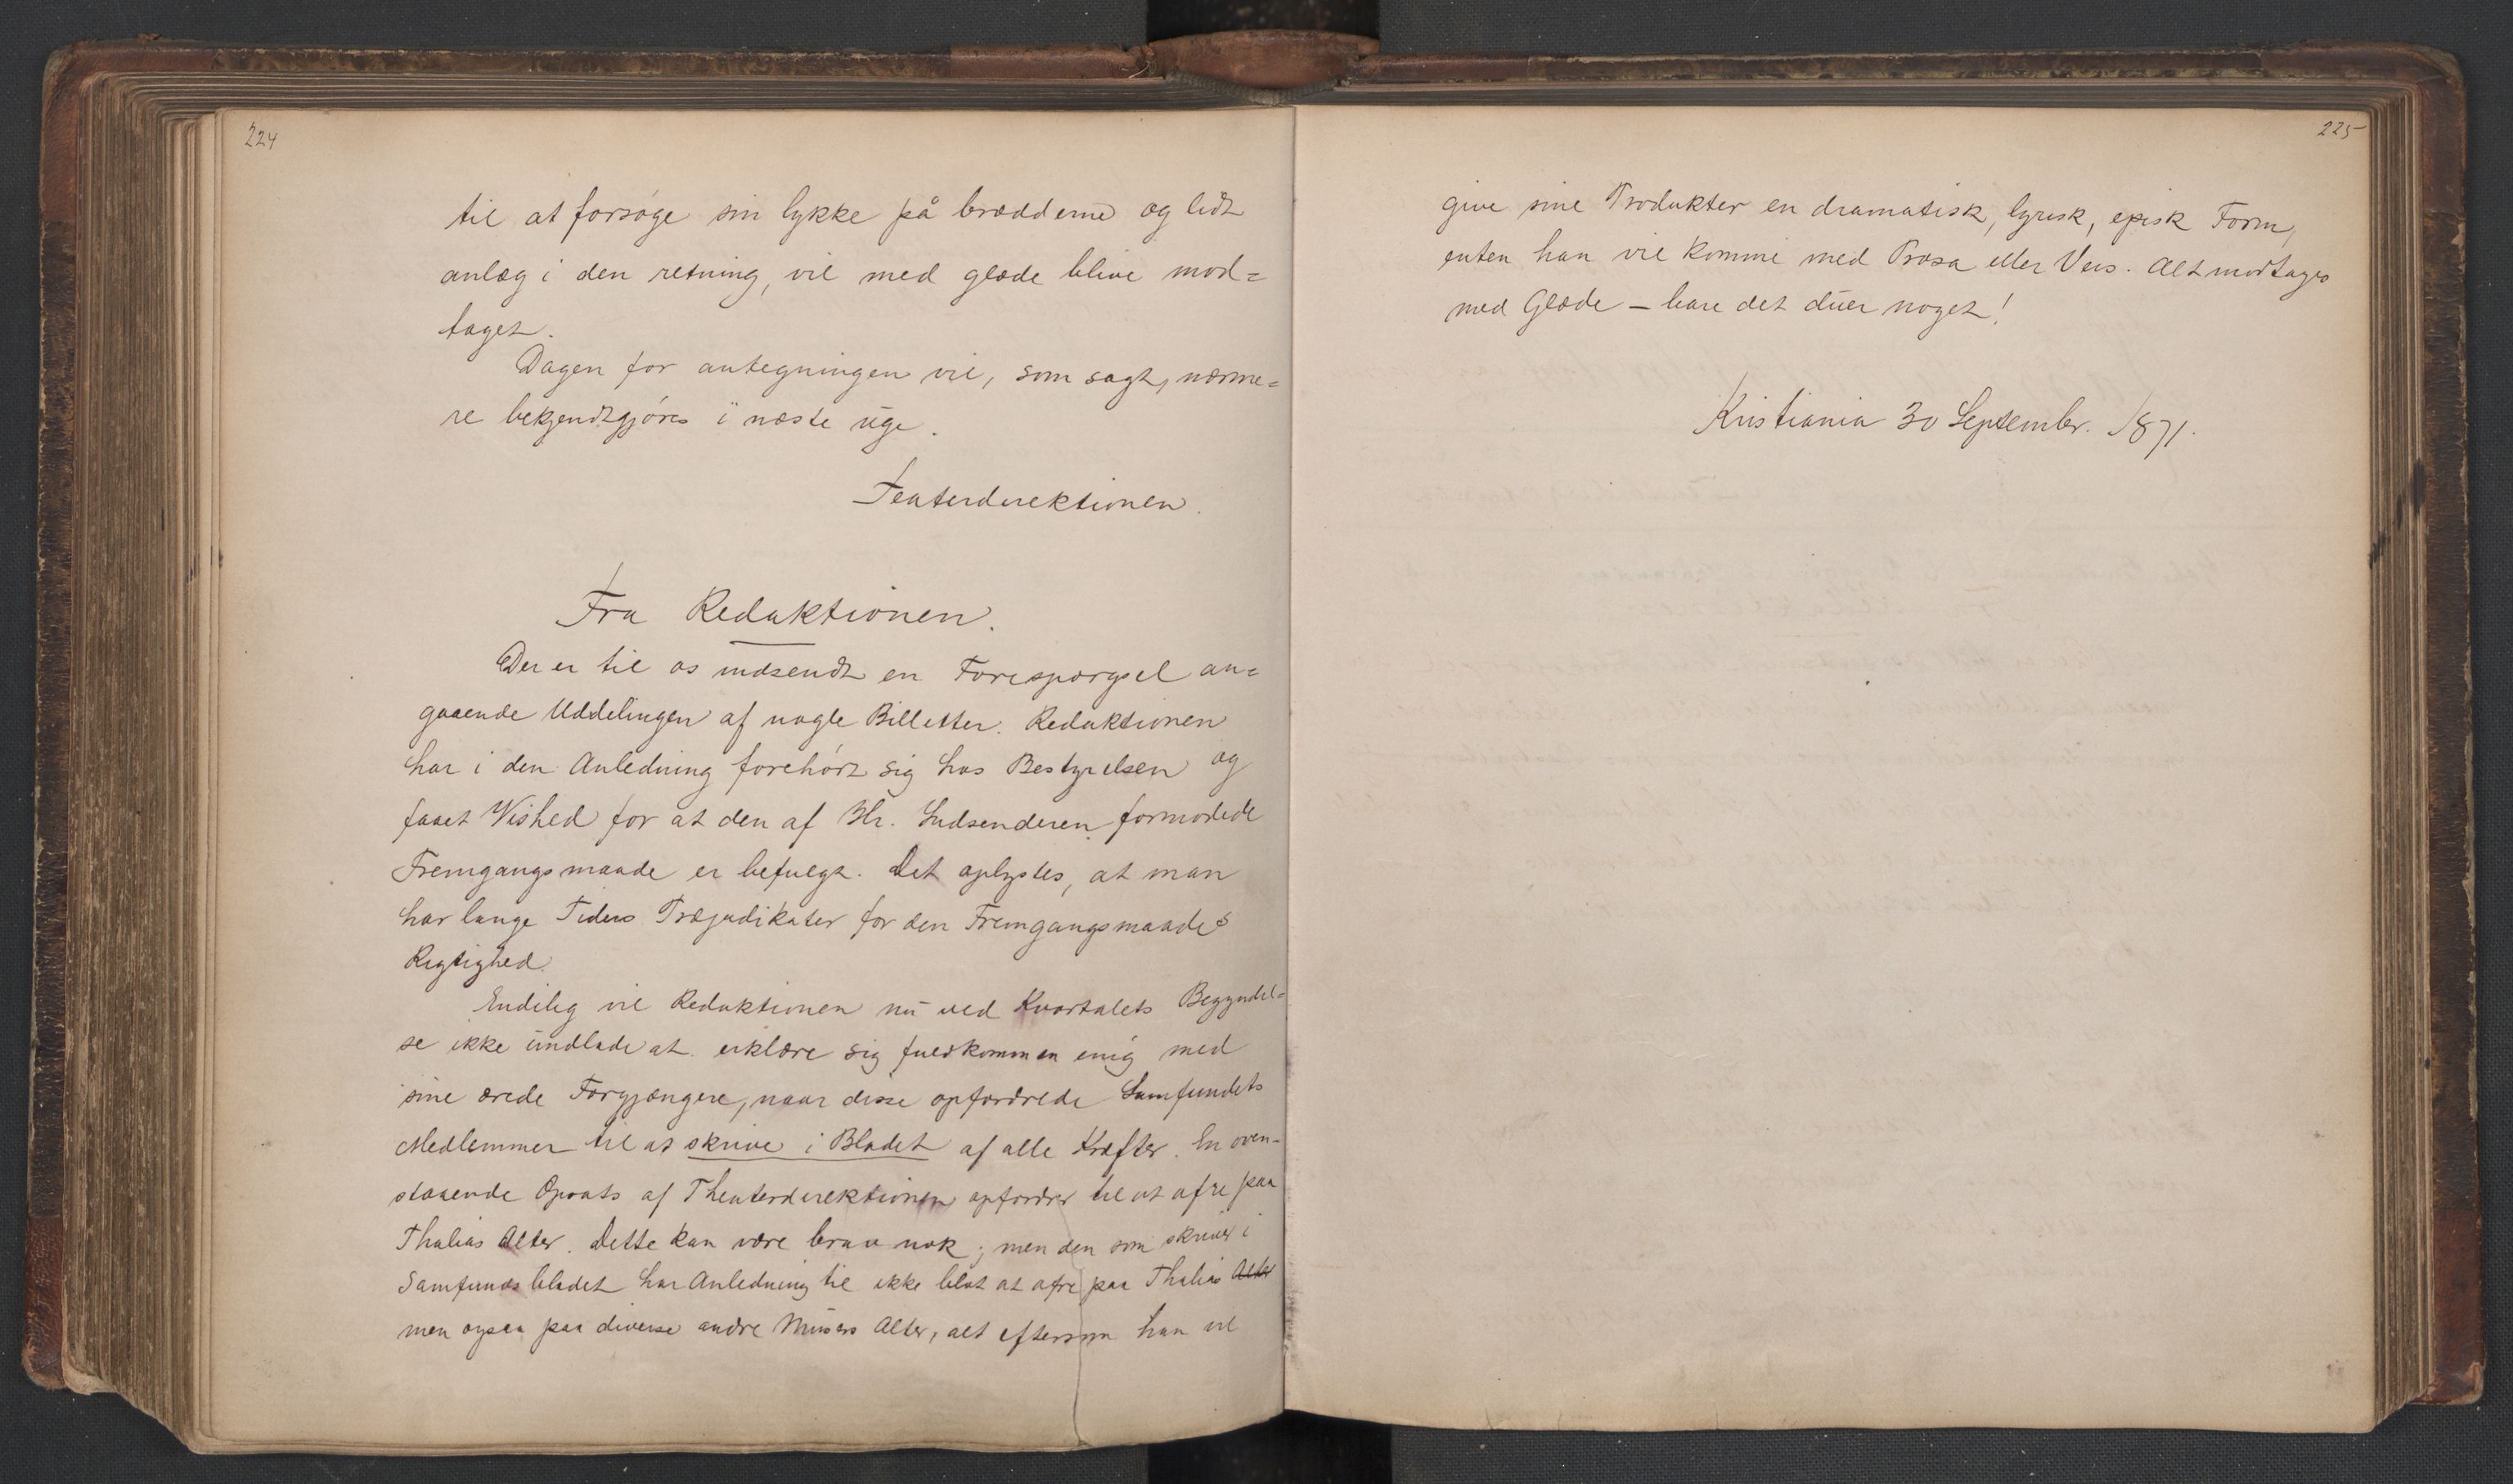 224
til at forsøge sin lykke på brædderne og lidt
anlæg i den retning, vil med glæde blive mod=
taget.
Dagen for antegningen vil, som sagt, nærme=
re bekjendtgjøres i næste uge.
Teaterdirektionen.
Fra Redaktionen.
Der er til os indsendt en Forespørgsel an=
gaaende Uddelingen af nogle Billetter. Redaktionen
har i den Anledning forehørt sig hos Bestyrelsen og
faaet Vished for at den af Hr. Indsenderen formodede
Fremgangsmaade er befulgt. Det oplystes, at man
har lange Tiders Præjudikater for den Fremgangsmaades
Rigtighed.
Endelig vil Redaktionen nu ved Kvartalets Begyndel=
se ikke undlade at erklære sig fuldkommen enig med
sine ærede Forgjængere, naar disse opfordrede Samfundets
Medlemmer til at skrive i Bladet af alle Kræfter. En oven-
staaende Opsats af Theaterdirektionen opfordrer til at ofre paa
Thalias Alter. Dette kan være bra nok; men den som skriver i
Samfundsbladet har Anledning til ikke blot at ofre paa Thalias Alter
men ogsaa paa diverse andre Musers Alter, alt eftersom han vil
225
give sine Produkter en dramatisk, lyrisk, episk Form,
enten han vil komme med Prosa eller Vers. Alt modtages
med Glæde – bare det duer noget!
Kristiania 30 September. 1871.